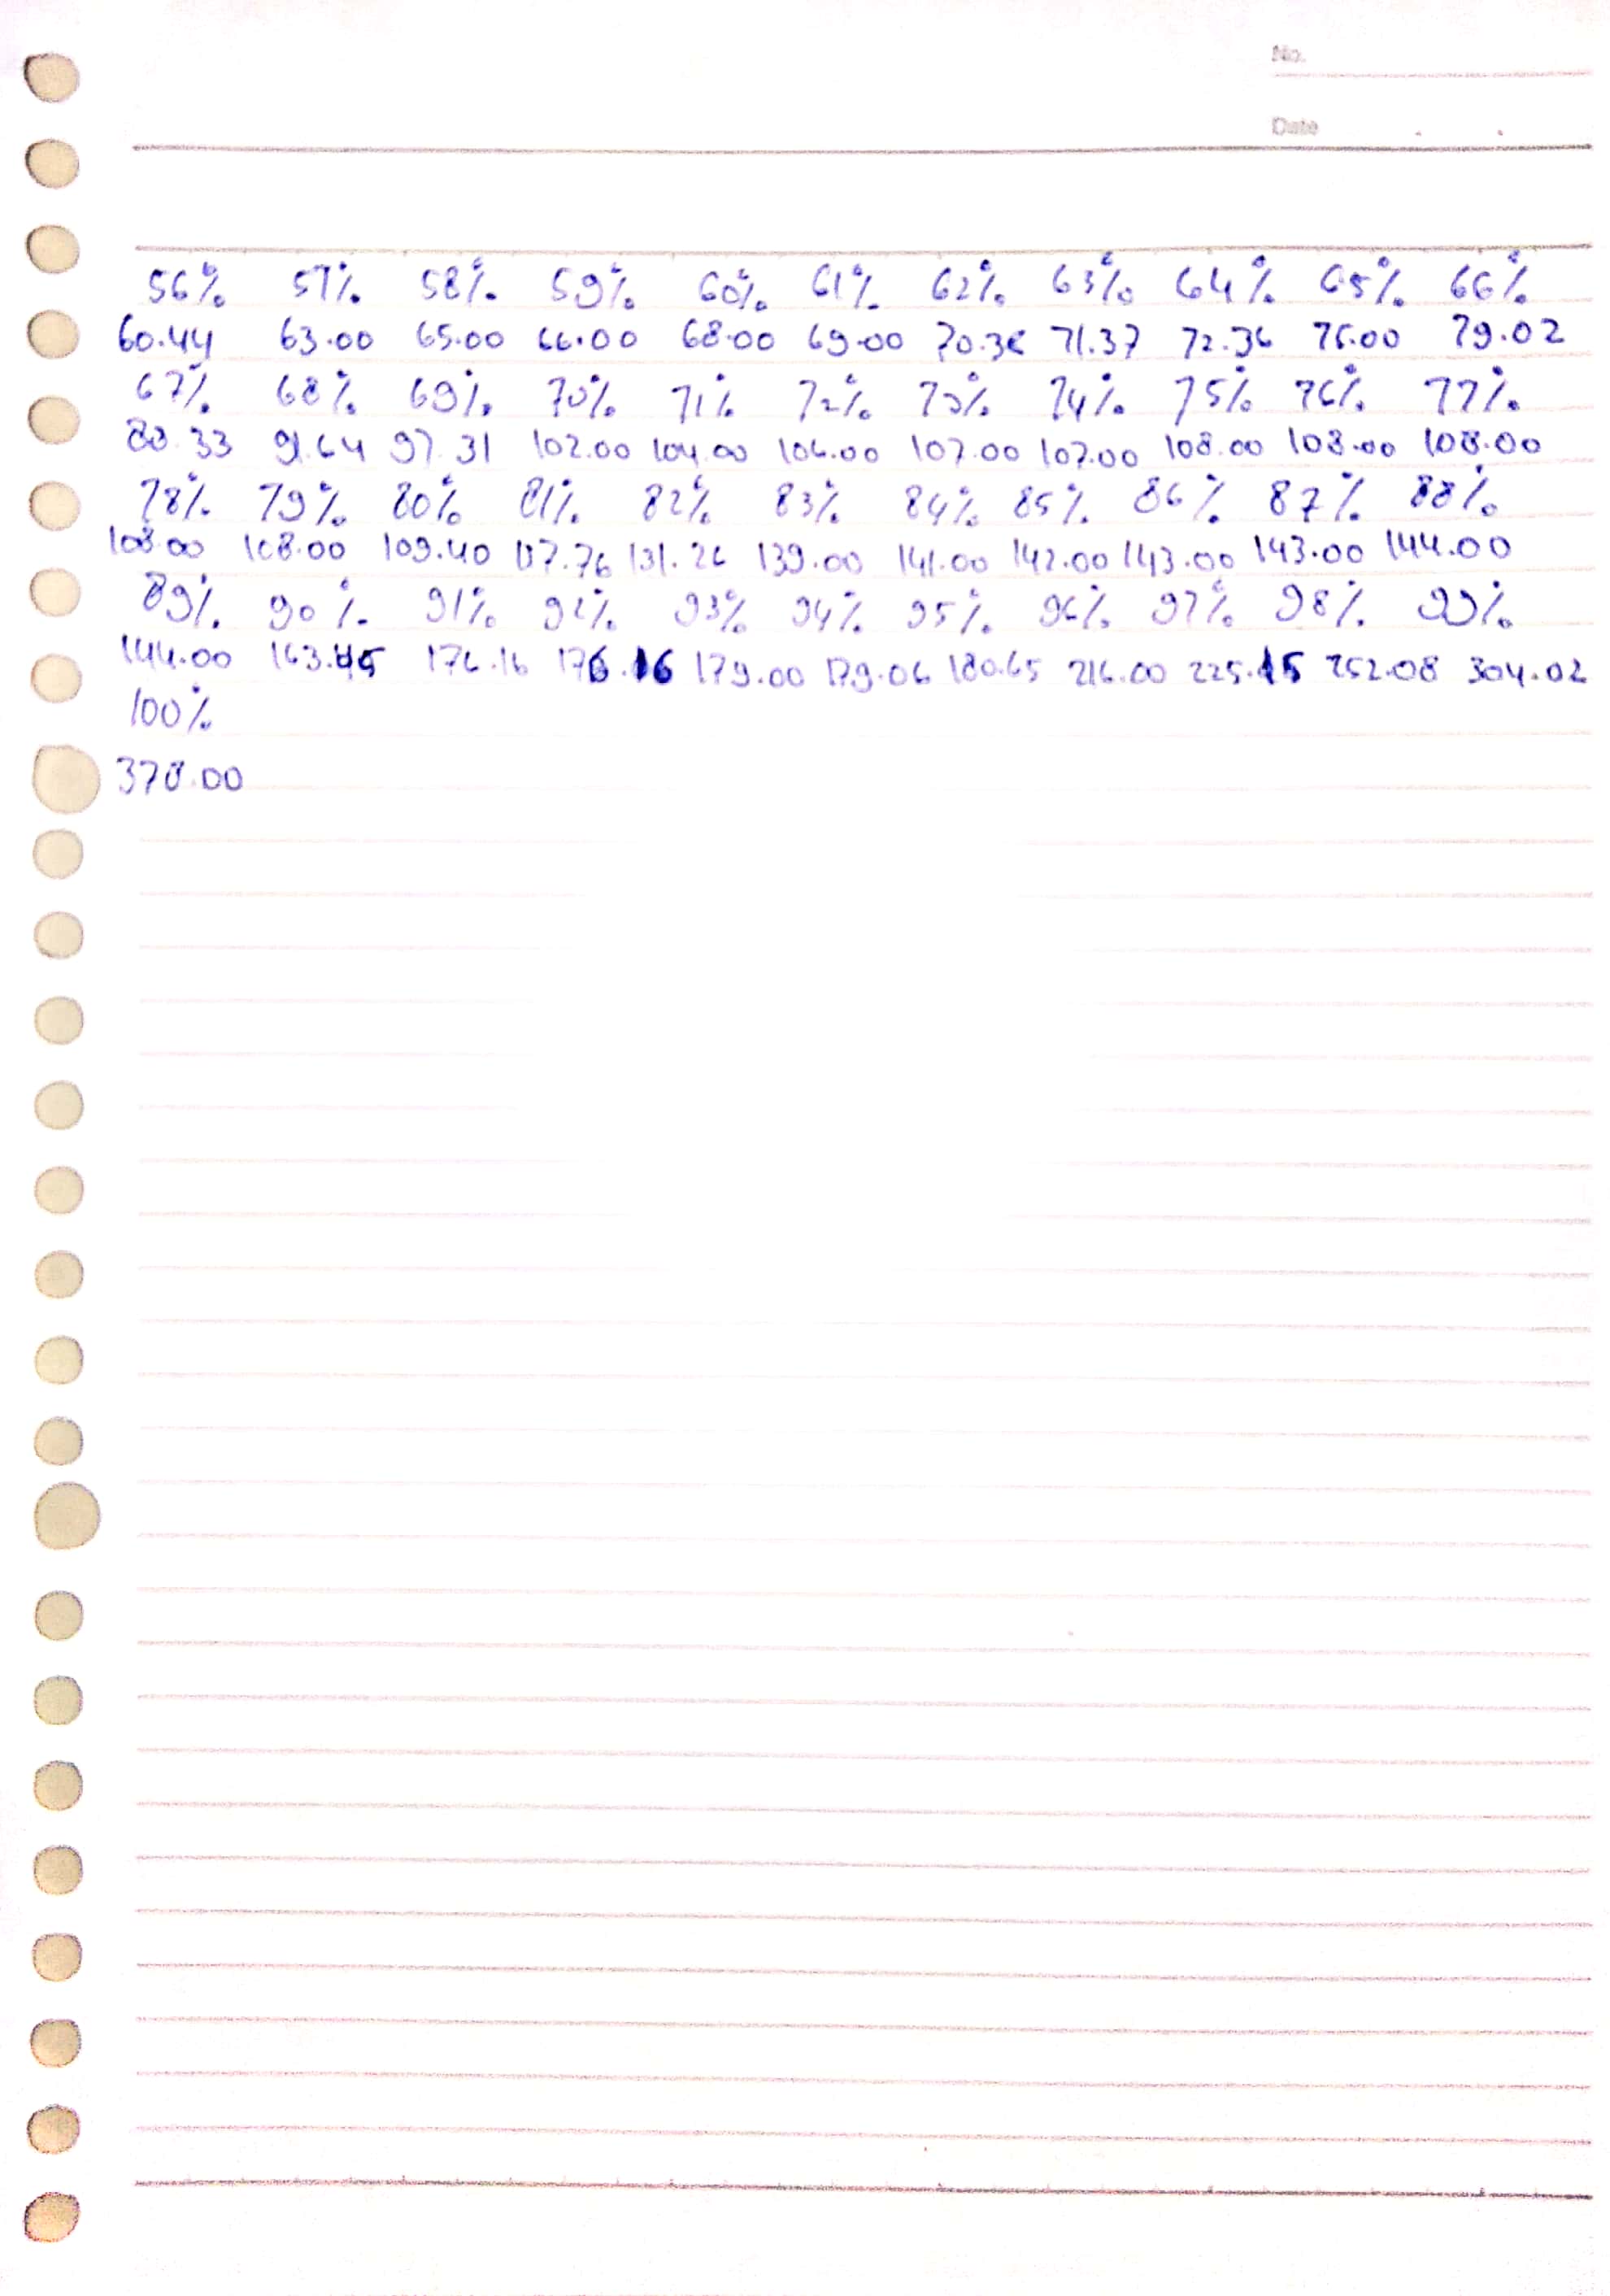 No.
Date
56% 57% 58% 59% 60% 61% 62% 63% 64% 65% 66%
60.44 63.00 65.00 66.00 68.00 69.00 70.36 71.37 72.36 76.00 79.02
67% 68% 69% 70% 71% 72% 73% 74% 75% 76% 77%
88.33 91.64 97.31 102.00 104.00 106.00 107.00 107.00 108.00 108.00 108.00
78% 79% 80% 81% 82% 83% 84% 85% 86% 87% 88%
108.00 108.00 109.40 131.26 139.00 141.00 142.00 143.00 143.00 144.00
89% 90% 91% 92% 93% 94% 95% 96% 97% 98% 99%
144.00 163.45 176.16 176.16 179.00 179.06 180.65 216.00 225.15 252.08 304.02
100%
378.00